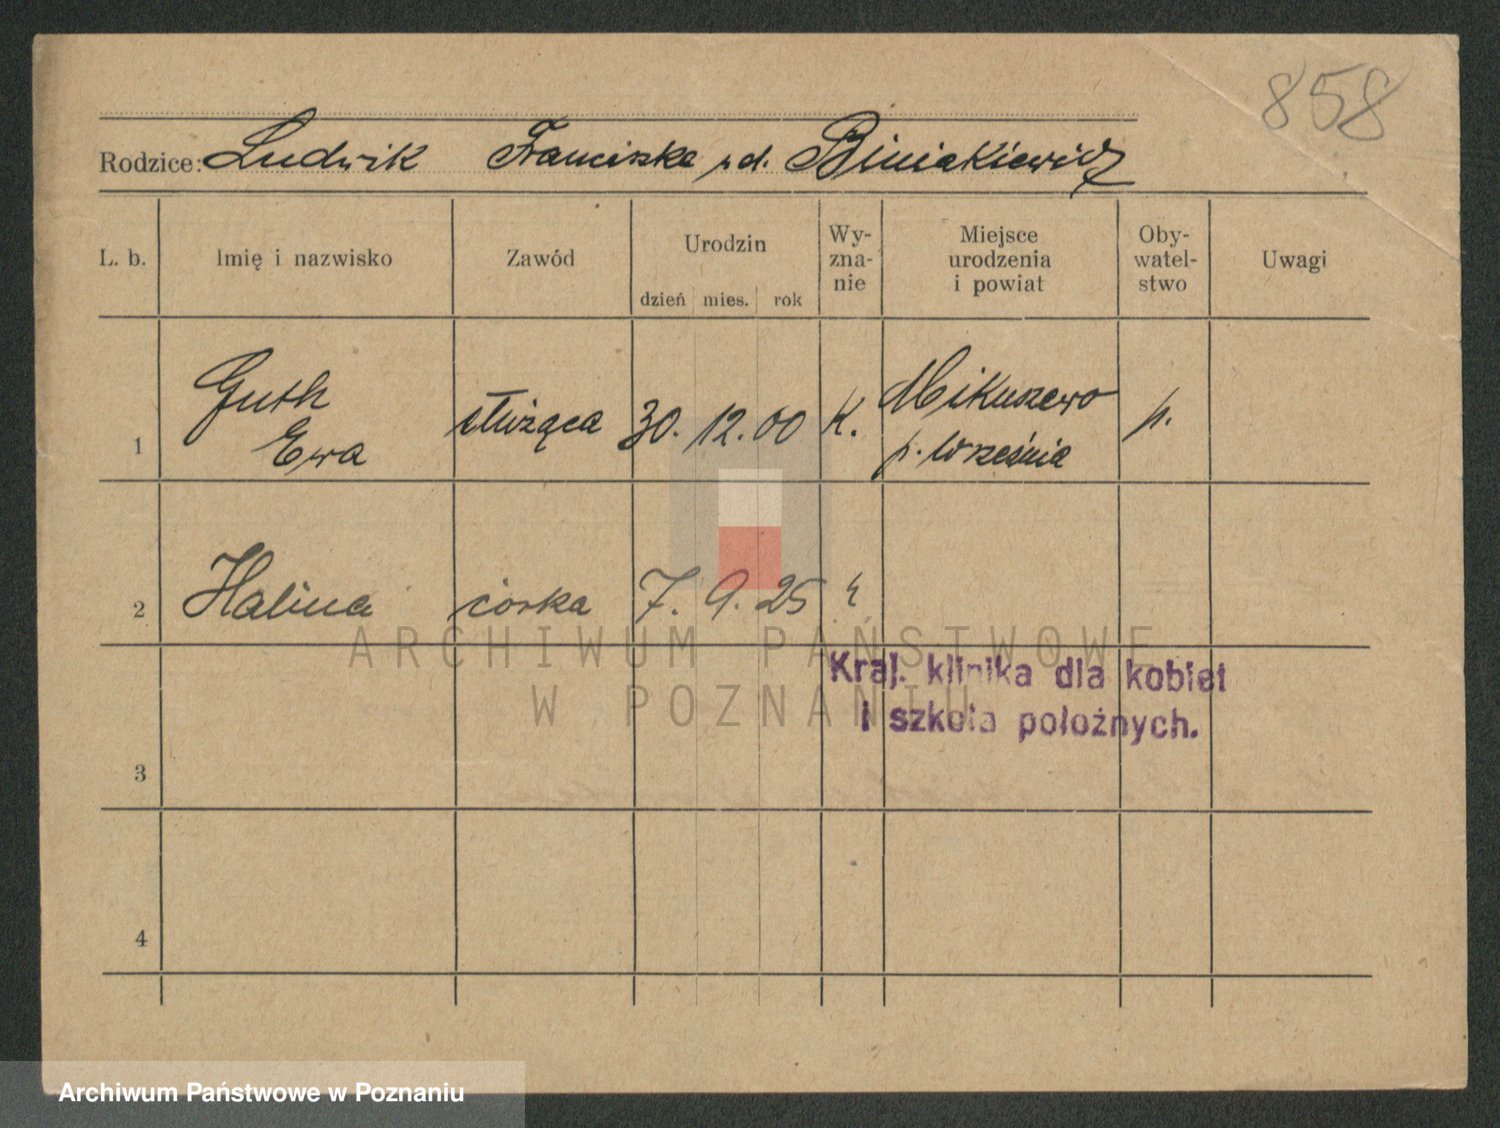 858
Rodzice: Ludwik Franciszka z d. Biniakiewicz
L. b. Imię i nazwisko Zawód Urodzin dzień mies. rok Wy-zna-nie Miejsce urodzenia i powiat Oby-watel-stwo Uwagi
1 Guth Ewa służąca 30. 12. 00 K. Mikuszewo p. Września p.
2 Halina córka 7. 9. 25
Kraj. klinika dla kobiet
i szkoła położnych.
3
4
ARCHIWUM PAŃSTWOWE
W POZNANIU
Archiwum Państwowe w Poznaniu